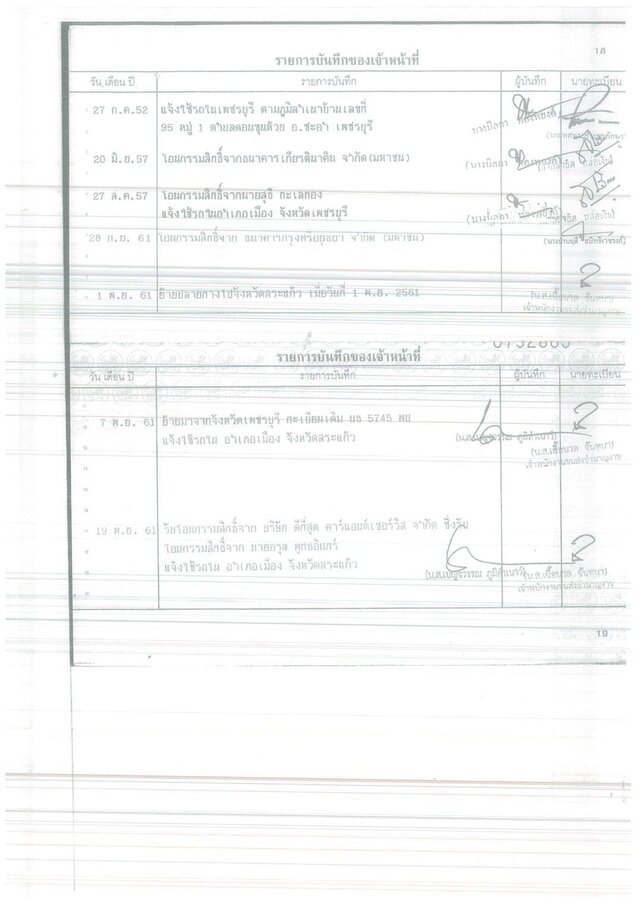 18
รายการบันทึกของเจ้าหน้าที่
วัน เดือน ปี รายการบันทึก ผู้บันทึก นายทะเบียน
27 ก.ค.52 แจ้งใช้รถในเพชรบุรี ตามภูมิลำเนาบ้านเลขที่
95 หมู่ 1 ตำบลดอนขุนห้วย อ.ชะอำ เพชรบุรี
20 มิ.ย.57 โอนกรรมสิทธิ์จากธนาคาร เกียรตินาคิน จำกัด(มหาชน)
27 ส.ค.57 โอนกรรมสิทธิ์จากนายสุธี ทะเลทอง
แจ้งใช้รถในอำเภอเมือง จังหวัดเพชรบุรี
28 ก.ย. 61 โอนกรรมสิทธิ์จาก ธนาคารกรุงศรีอยุธยา จำกัด (มหาชน)
1 พ.ย. 61 ย้ายปลายทางไปจังหวัดสระแก้ว เมื่อวันที่ 1 พ.ย. 2561
(น.ส.เบื้อนวล จันทนา)
เจ้าพนักงานขนส่งชำนาญงาน
รายการบันทึกของเจ้าหน้าที่
วัน เดือน ปี รายการบันทึก ผู้บันทึก นายทะเบียน
7 พ.ย. 61 ย้ายมาจากจังหวัดเพชรบุรี ทะเบียนเดิม บธ 5745 พบ
แจ้งใช้รถใน อำเภอเมือง จังหวัดสระแก้ว
(น.ส.เบญจวรรณ ภูมิลำเนาว์)
เจ้าพนักงานขนส่งชำนาญงาน
19 พ.ย. 61 รับโอนกรรมสิทธิ์จาก บริษัท ดีที่สุด คาร์แอนด์เซอร์วิส จำกัด ซึ่งรับ
โอนกรรมสิทธิ์จาก นายอรุษ พุทธอินทร์
แจ้งใช้รถใน อำเภอเมือง จังหวัดสระแก้ว
(น.ส.เบญจวรรณ ภูมิลำเนาว์)
เจ้าพนักงานขนส่งชำนาญงาน
19